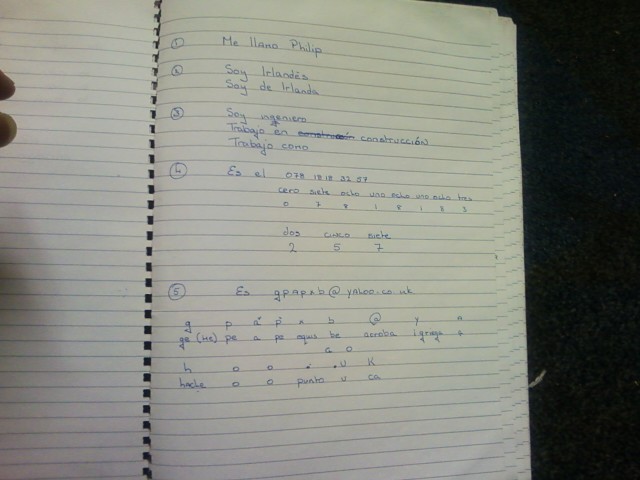 ① Me llamo Philip
② Soy Irlandés
Soy de Irlanda
③ Soy ingeniero
Trabajo en construcción
Trabajo como
④ Es el 078 1818 32 57
cero siete ocho uno ocho uno ocho tres
0 7 8 1 8 1 8 3
dos cinco siete
2 5 7
⑤ Es gpapxb@yahoo.co.uk
g p a p x b @ y a
ge (He) pe a pe equis be arroba i griega a
c o
h o o . . U K
hache o o punto u ca